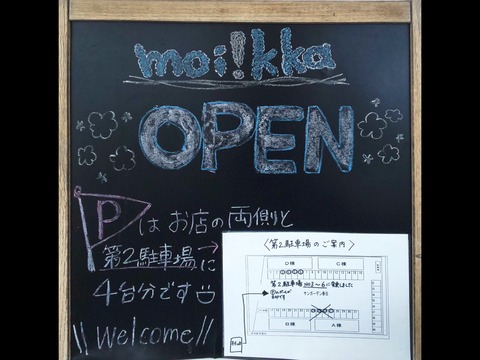 moi!kka
OPEN
Pは お店の両側と
第2駐車場に
4台分です
welcome
〈第2駐車場のご案内〉
D棟
C棟
第2駐車場
に変更しました
B棟
A棟